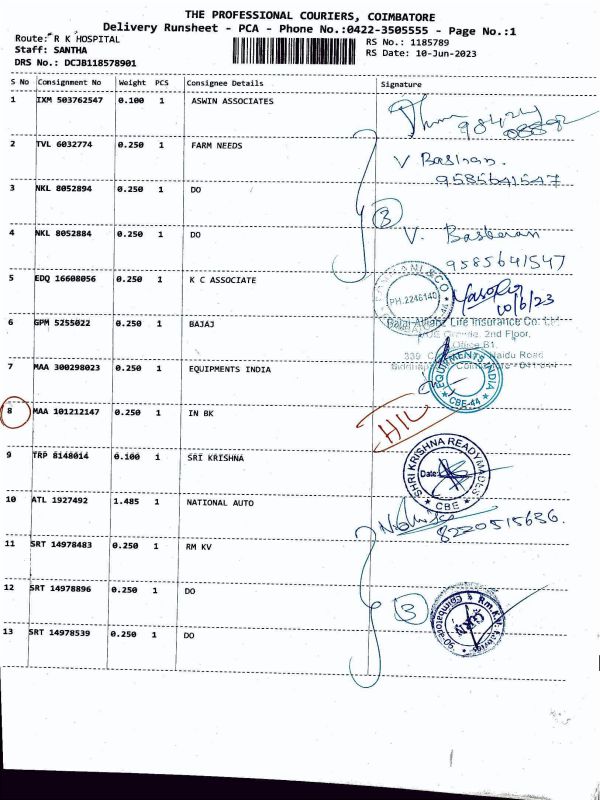 THE PROFESSIONAL COURIERS, COIMBATORE
Delivery Runsheet - PCA - Phone No.:0422-3505555 - Page No.:1
Route: R K HOSPITAL
RS No.: 1185789
Staff: SANTHA
RS Date: 10-Jun-2023
DRS No.: DCJB118578901
S No Consignment No Weight PCS Consignee Details Signature
1 IXM 503762547 0.100 1 ASWIN ASSOCIATES
2 TVL 6032774 0.250 1 FARM NEEDS V Baskran.
9585641547
3 NKL 8052894 0.250 1 DO 3
4 NKL 8052884 0.250 1 DO V. Baskaran
9585641547
5 EDQ 16608056 0.250 1 K C ASSOCIATE PH.2246140 10/6/23
6 GPM 5255022 0.250 1 BAJAJ Life Insurance Co.
2nd Floor,
Office B1,
Naidu Road
7 MAA 300298023 0.250 1 EQUIPMENTS INDIA EQUIPMENTS INDIA CBE-44
8 MAA 101212147 0.250 1 IN BK HIL
9 TRP 8148014 0.100 1 SRI KRISHNA SHRI KRISHNA READYMADES Date: CBE
10 ATL 1927492 1.485 1 NATIONAL AUTO 8220515636.
11 SRT 14978483 0.250 1 RM KV
12 SRT 14978896 0.250 1 DO 3
13 SRT 14978539 0.250 1 DO